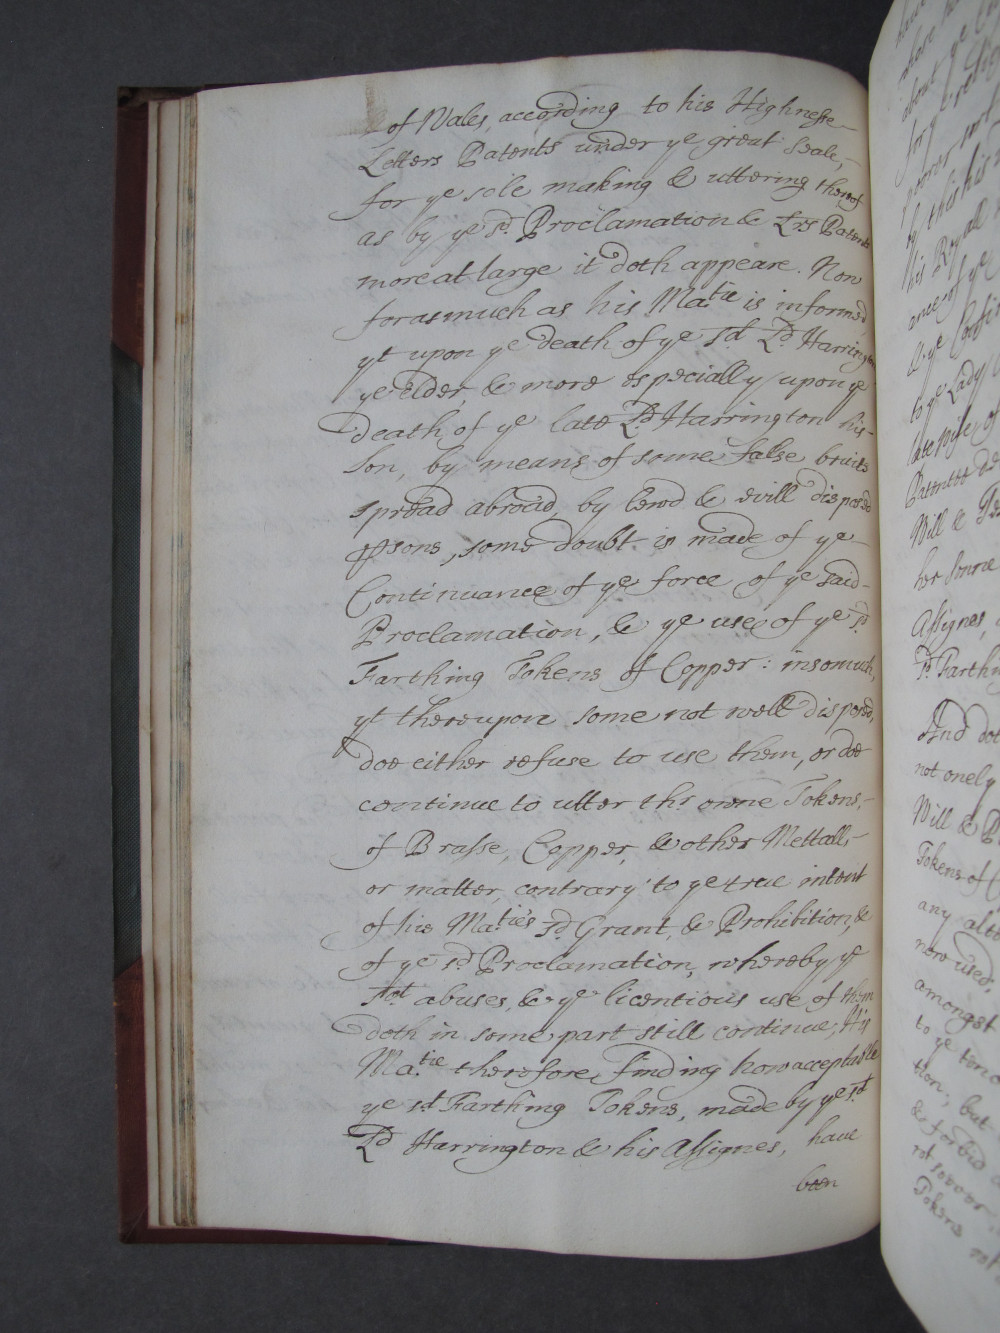 of Wales, according to his Highnesse
Letters Patents under ye great Seale,
for ye sole making & uttering thereof
as by ye sd. Proclamation & Lrs Patents
more at large it doth appeare. Now
forasmuch as his Ma.tie is informed
yt upon ye death of ye sd Ld Harrington
ye elder, & more especially upon ye
death of ye late Ld Harrington his
Son, by means of some false bruits
spread abroad, by lewd & evill disposed
psons, some doubt is made of ye
Continuance of ye force of ye said
Proclamation, & ye use of ye sd
Farthing Tokens of Copper: insomuch,
yt thereupon some not well disposed,
doe either refuse to use them, or doe
continue to utter thr owne Tokens,
of Brasse, Copper, & other Mettall,
or matter, contrary to ye true intent
of his Ma.ties sd. Grant, & Prohibition, &
of ye sd Proclamation, whereby ye
abuses, & ye licentious use of them
doth in some part still continue; His
Ma.tie therefore finding how acceptable
ye sd Farthing Tokens, made by ye sd
Ld Harrington & his Assignes, have
been
have
about ye
for ye
poorer sort
of this his
his Royall
ance of ye
& ye
to ye Lady
late wife of
Patentee
Will &
her Sonne
Assignes,
sd. Farthing
And doth
not onely
Will & P
Tokens of C
any alte
now used,
amongst
to ye teno
tion, but
& forbid
Tokens not